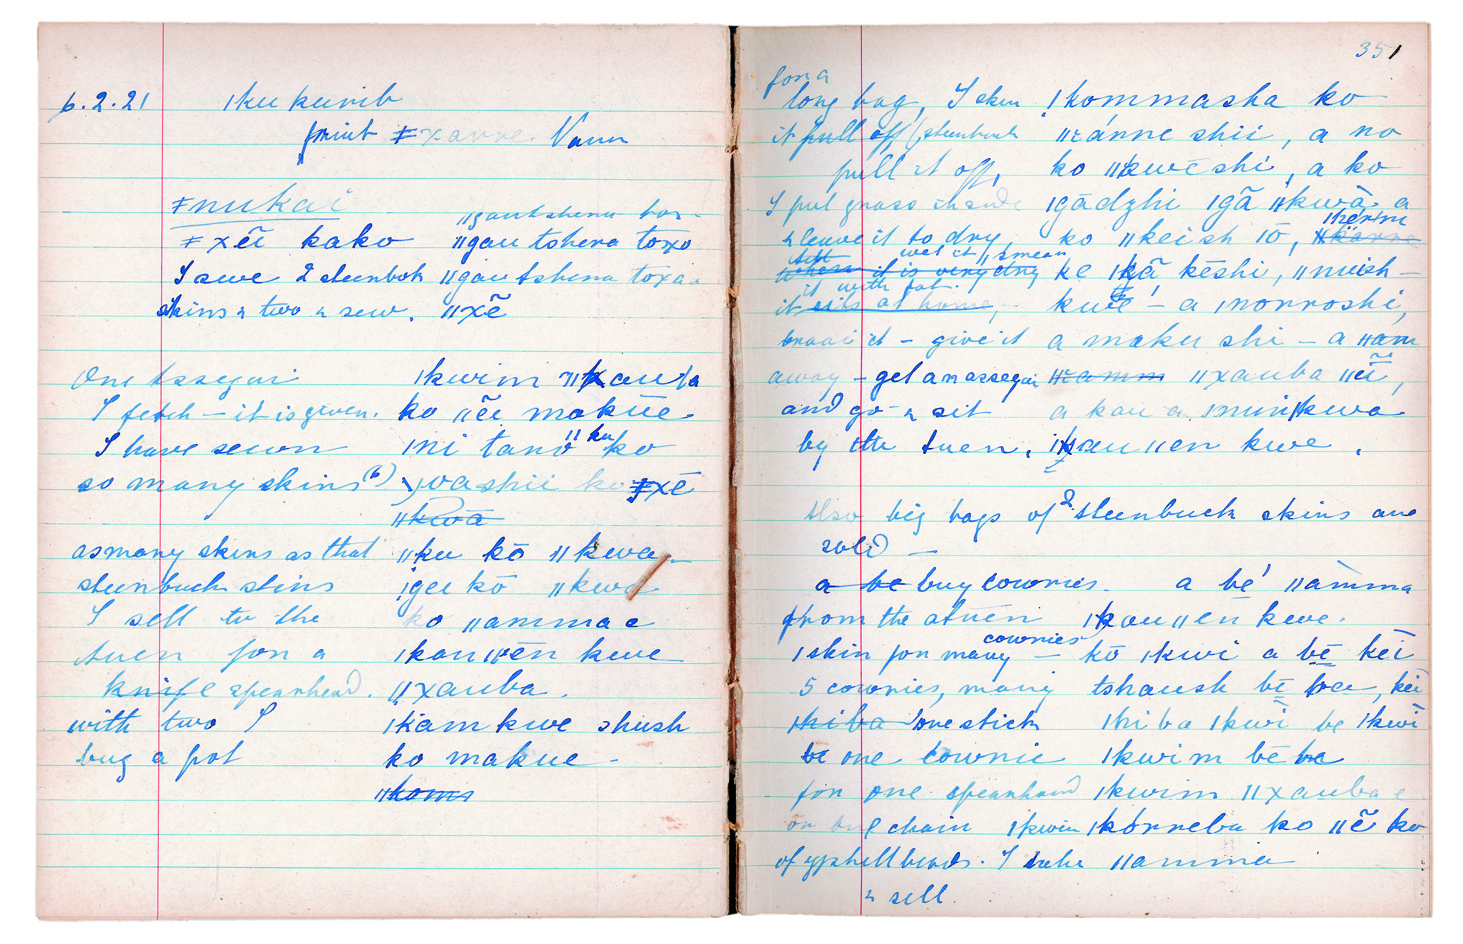 6.2.21 ǀku kurib
print ǂxanne. Vann
ǂnukai
ǁgautshena tox-
ǂxẽi kako ǁgau tshena toxo
I sew 2 steenbok ǁgautshena toxai
skins & two & sew. ǁxẽ
One Assegai ǀkwim ǁxauba
I fetch – it is given. ko ǁẽi makūe.
I have sewn ǀni tano ǁku ko
so many skins (6) yoashii ko ǂxē
ǁkwa
as many skins as that ǁku kō ǁkwa.
steenbuck skins ǃgei kō ǁkwa
I sell to the ko ǁamma e
Auen for a ǀkauǁēn kwe
knife spearhead. ǁxauba.
with two I ǀkam kwe shush
bug a pot ko makue -
ǁkoms
351
for a
long bag, I skin ǃkommasha ko
it pull off, (steenbuck ǁzánne shii, a no
pull it off, ko ǁkwē shi, a ko
I put grass inside ǀgādzhi ǀgã ǁkwā. a
& leave it to dry, ko ǁkeish 10,
wet it & smear
when it is very dry ke ǀkã kēshi, ǁnuish–
it with fat.
it sits at home, – kuē – a ǀnorroshi,
braai it – give it a maku shi – a ǁam
away – get an assegai ǁzamm ǁxauba ǁũ,
and go & sit a kau a ǀnunǀkwa
by the Auen, ǀkauǁen kwe.
Also big bags of 2 steenbuck skins are
sold –
a be buy cowries. a be' ǁàmma
from the auen ǀkauǁen kwe.
cowries
1 skin for many – kō ǀkwi a bē kēi
5 cowries, many tshaush bē be, kei
ǀhiba one stick ǀhiba ǀkwĩ be ǀkwĩ
be one cownie ǀkwim bē be
for one spearhead ǀkwim ǁxauba e
or one chain ǀkwim ǀkórreba ko ǁẽ ko
shell beads. I take ǁamma
& sell.